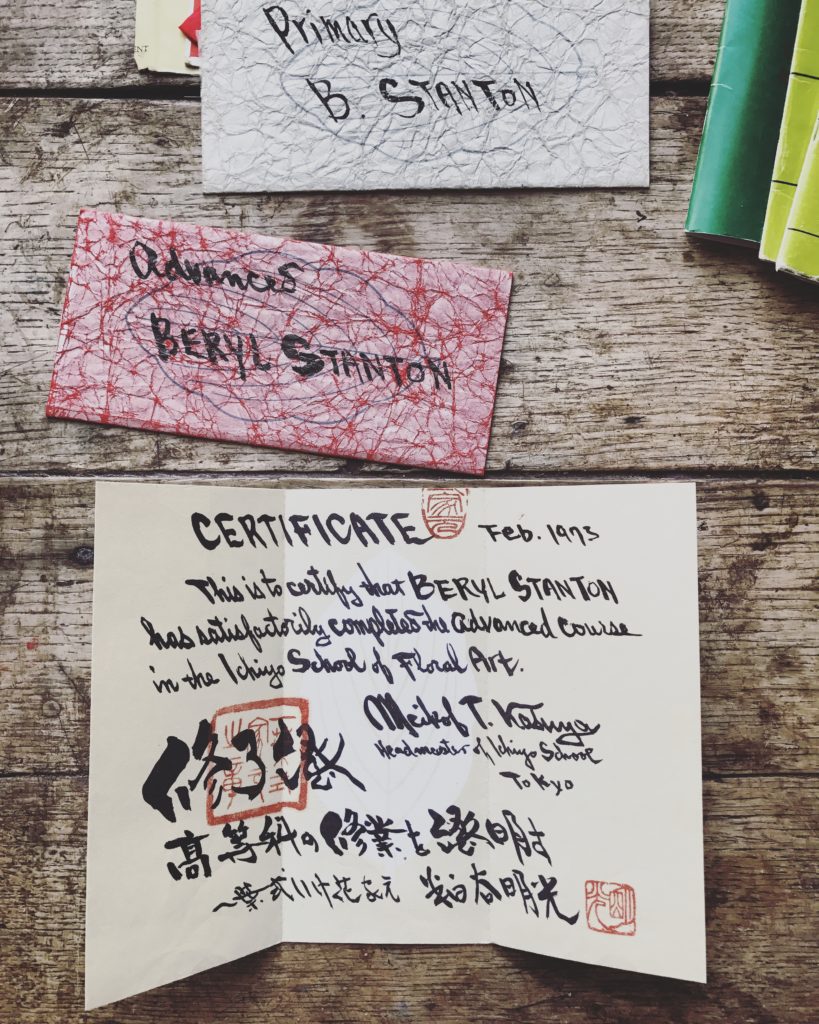 ENT
Primary
B. STANTON
Advanced
BERYL STANTON
CERTIFICATE Feb. 1973
This is to certify that BERYL STANTON
has satisfactorily completed the advanced course
in the Ichiyo School of Floral Art.
Meikof T. Kasuya
Headmaster of Ichiyo School
Tokyo
修了証
高等科の修業を証明す
一葉式いけ花家元 粕谷明光